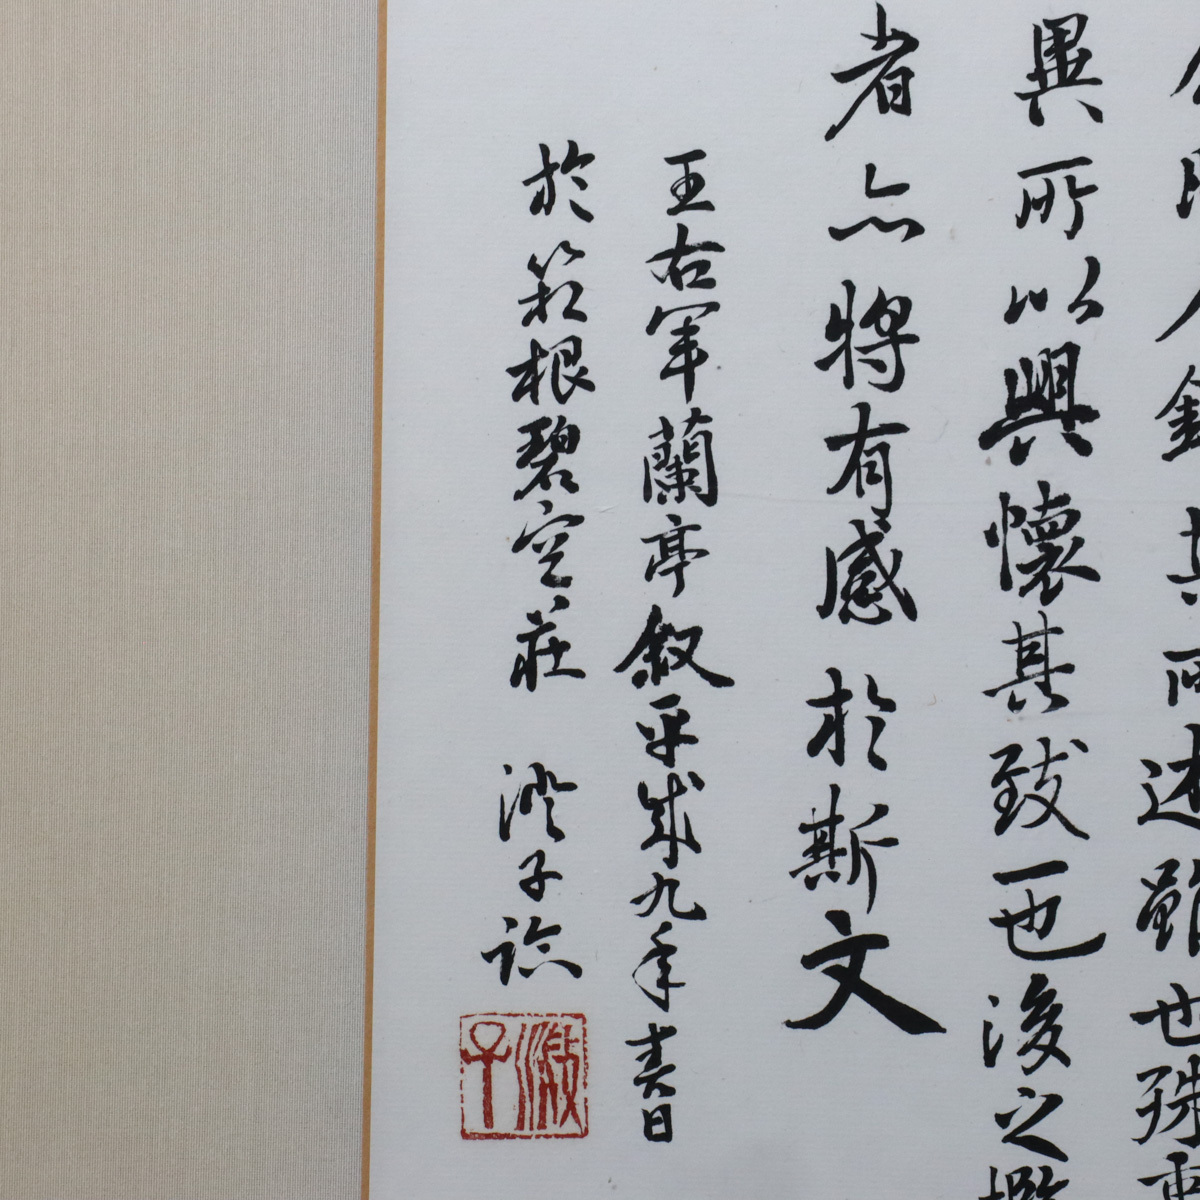 人錄其所述雖世殊事
異所以興懷其致一也後之攬
者亦將有感於斯文
王右軍蘭亭敘平成九年春日
於箱根碧空莊 澄子臨
澂子